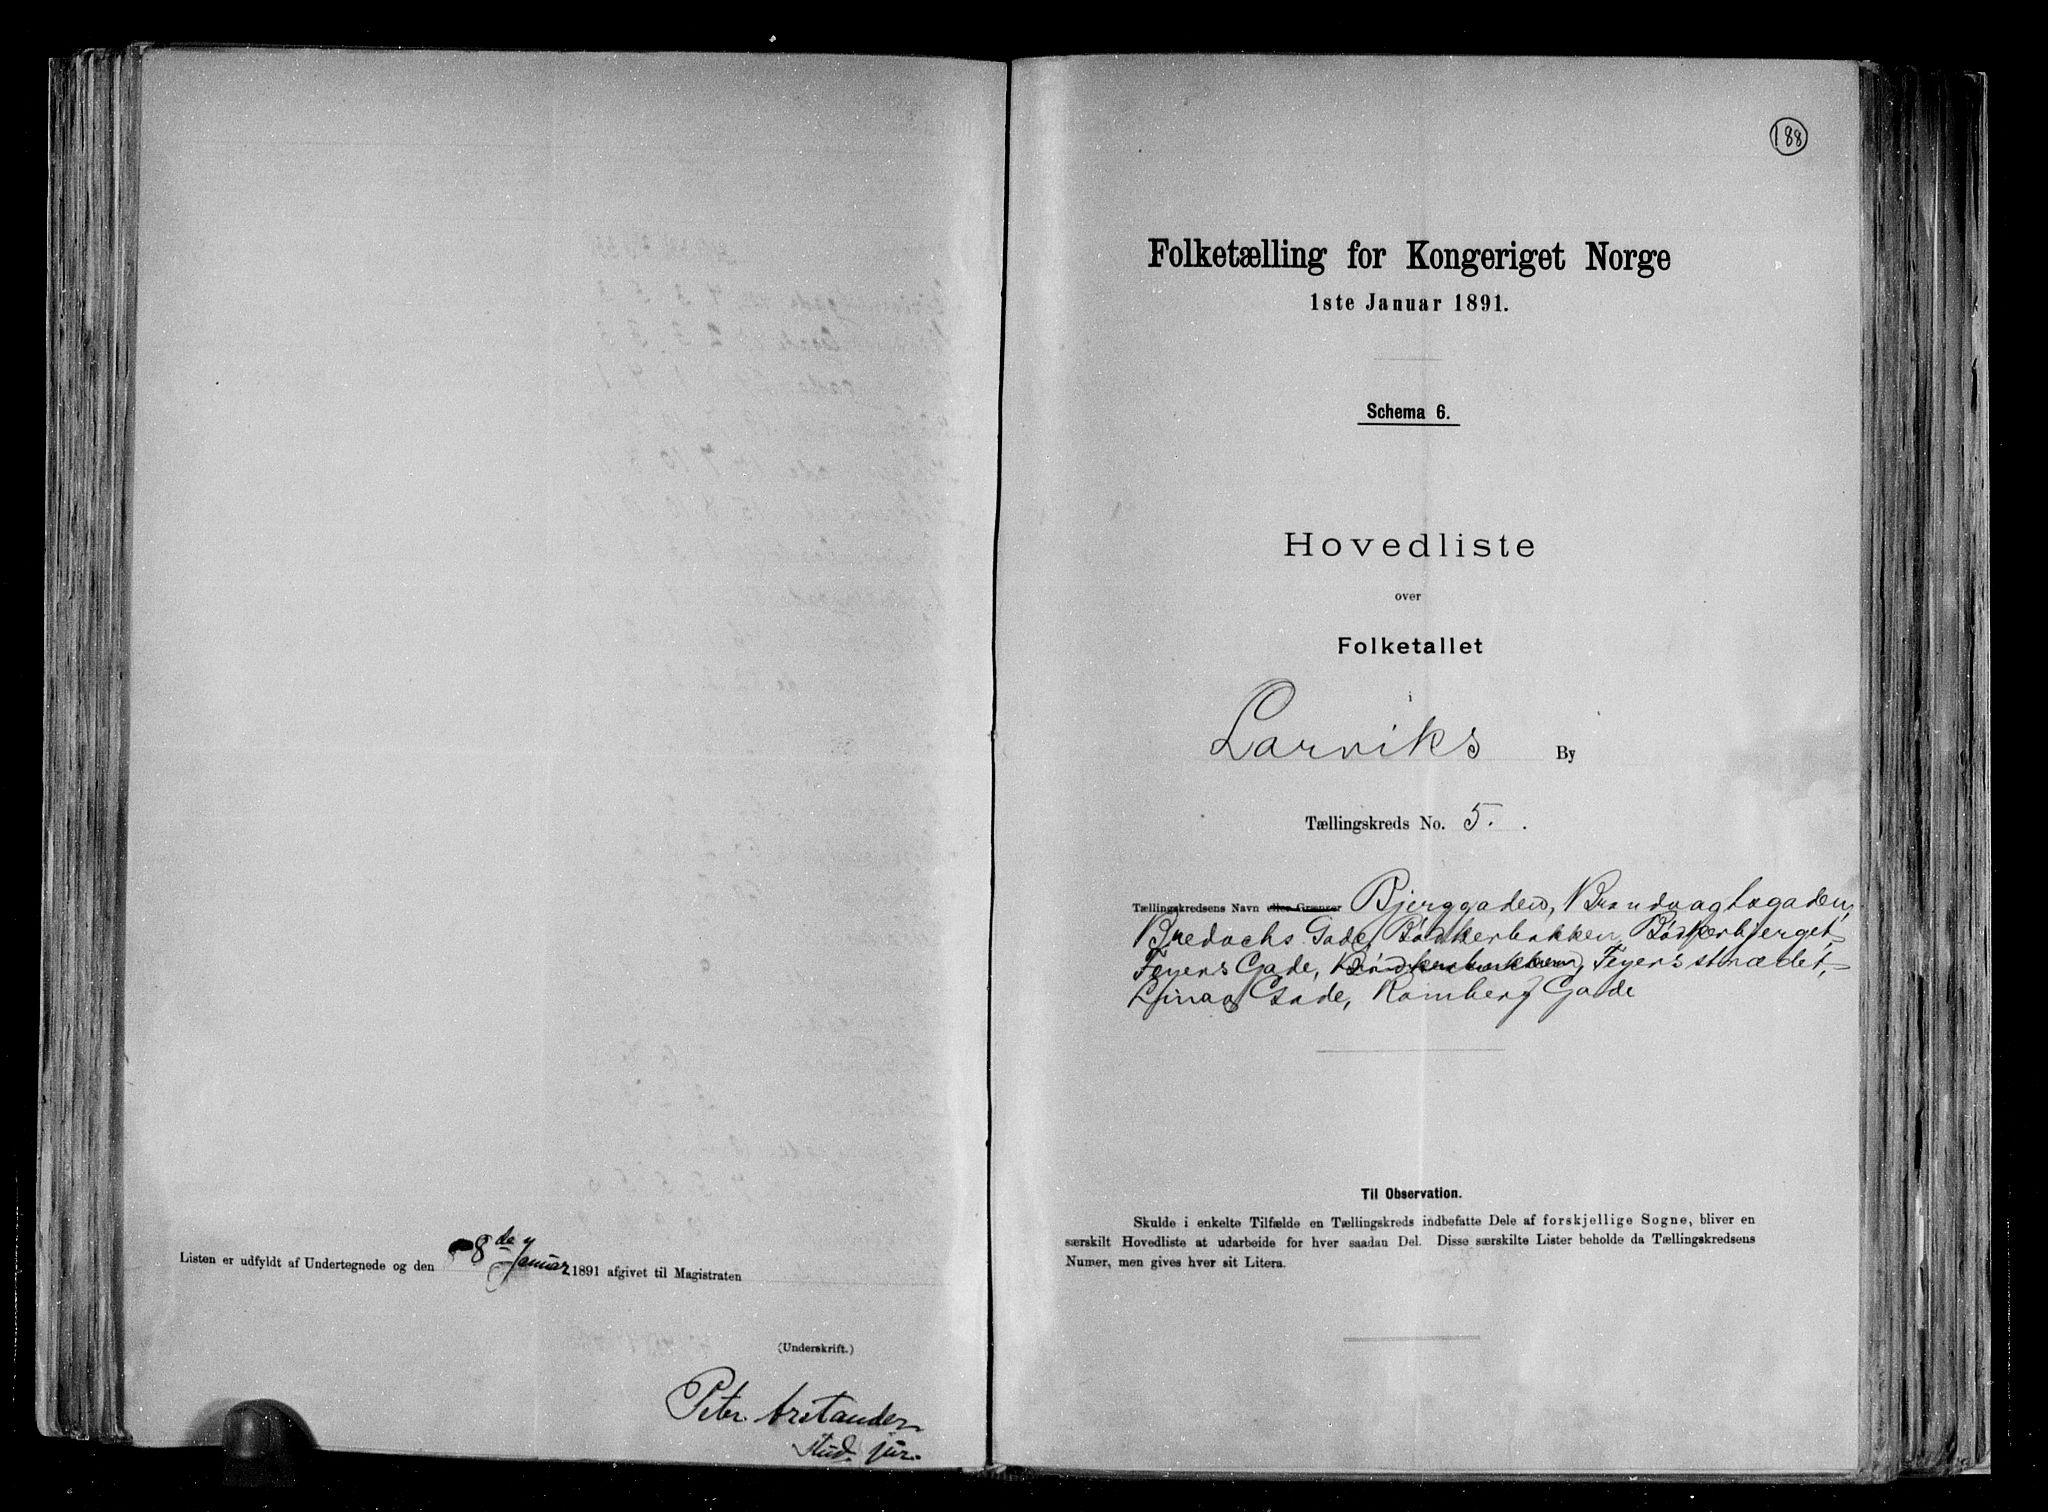 Listen er udfyldt af Undertegnede og den 8de Januar 1891 afgivet til Magistraten
(Underskrift.)
Peter
stud. jur.
188
Folketælling for Kongeriget Norge
1ste Januar 1891.
Schema 6.
Hovedliste
over
Folketallet
i
Larviks By
Tællingskreds No. 5.
Tællingskredsens Navn eller Grænser Bjerggaden, Brandvagtsgaden,
Bredochs Gade, Bødkerbakken, Bødkerbjerget,
Feyers Gade, Bødkerbakken, Feyersstrædet,
Gade, Romberg Gade
Til Observation.
Skulde i enkelte Tilfælde en Tællingskreds indbefatte Dele af forskjellige Sogne, bliver en
særskilt Hovedliste at udarbeide for hver saadan Del. Disse særskilte Lister beholde da Tællingskredsens
Numer, men gives hver sit Litera.